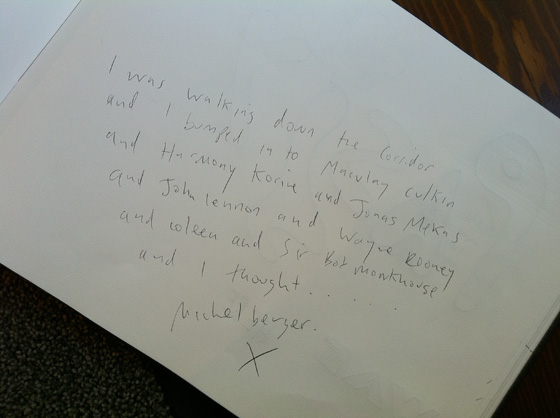 I was walking down the corridor
and I bumped in to Maculay culkin
and Harmony Korine and Jonas Mekas
and John Lennon and Wayne Rooney
and coleen and Sir Bob monkhouse
and I thought......
Michelberger.
X